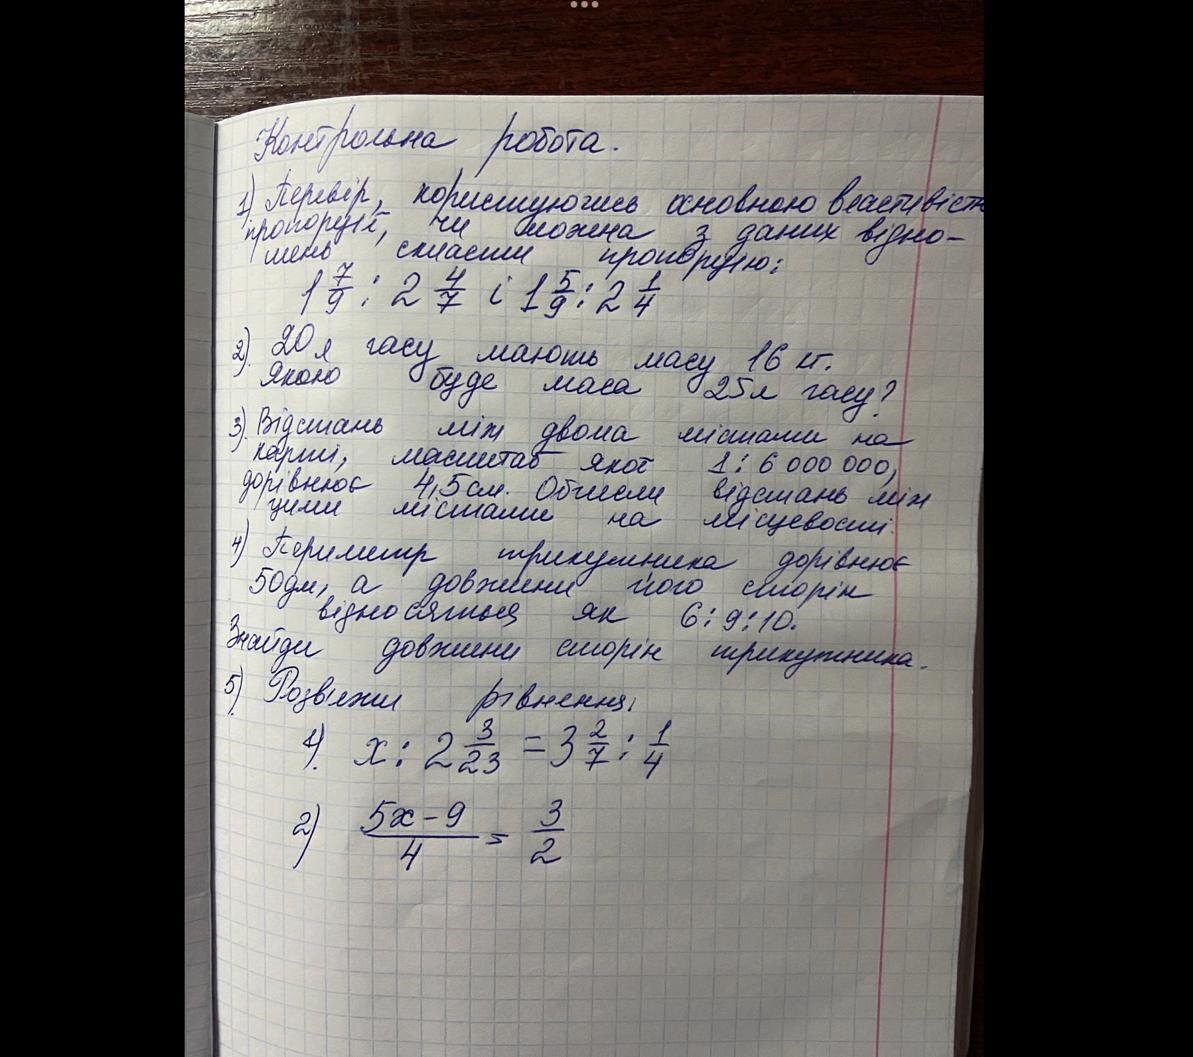 Контрольна робота.
1) Перевір, користуючись основною властивістю
пропорції, чи можна з даних відно-
мень скласти пропорцію:
1 7/9 : 2 4/7 і 1 5/9 : 2 1/4
2) 20 л гасу мають масу 16 кг.
Якою буде маса 25 л гасу?
3) Відстань між двома містами на
карті, масштаб якої 1 : 6 000 000,
дорівнює 4,5 см. Обчисли відстань між
цими містами на місцевості.
4) Периметр трикутника дорівнює
50 дм, а довжини його сторін
відносяться як 6 : 9 : 10.
Знайди довжини сторін трикутника.
5) Розв'яжи рівняння:
1) x : 2 3/23 = 3 2/7 : 1/4
2) (5x - 9)/4 = 3/2